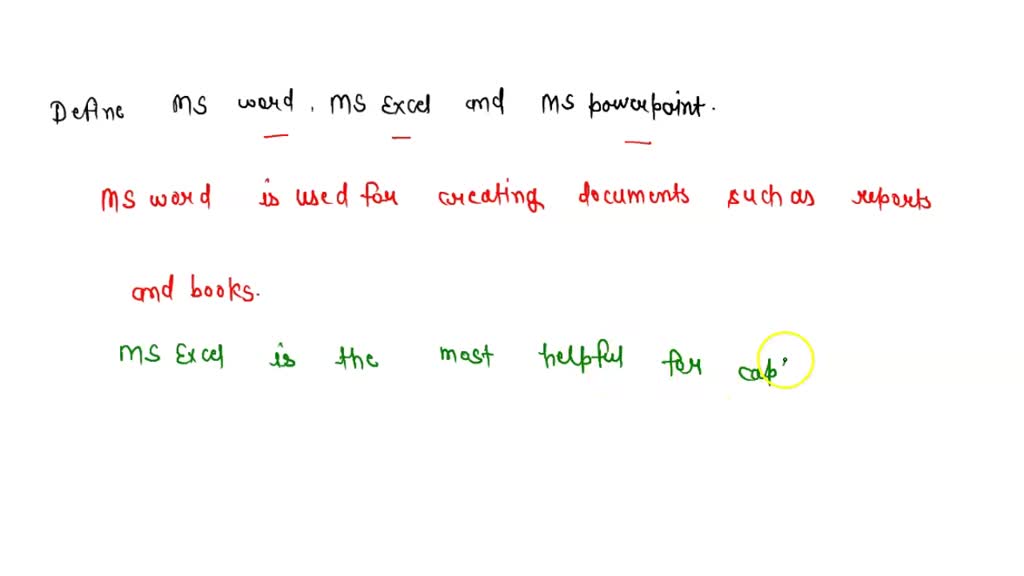 Define MS word, MS Excel and MS powerpoint.
MS word is used for creating documents such as reports
and books.
MS Excel is the most helpful for cap